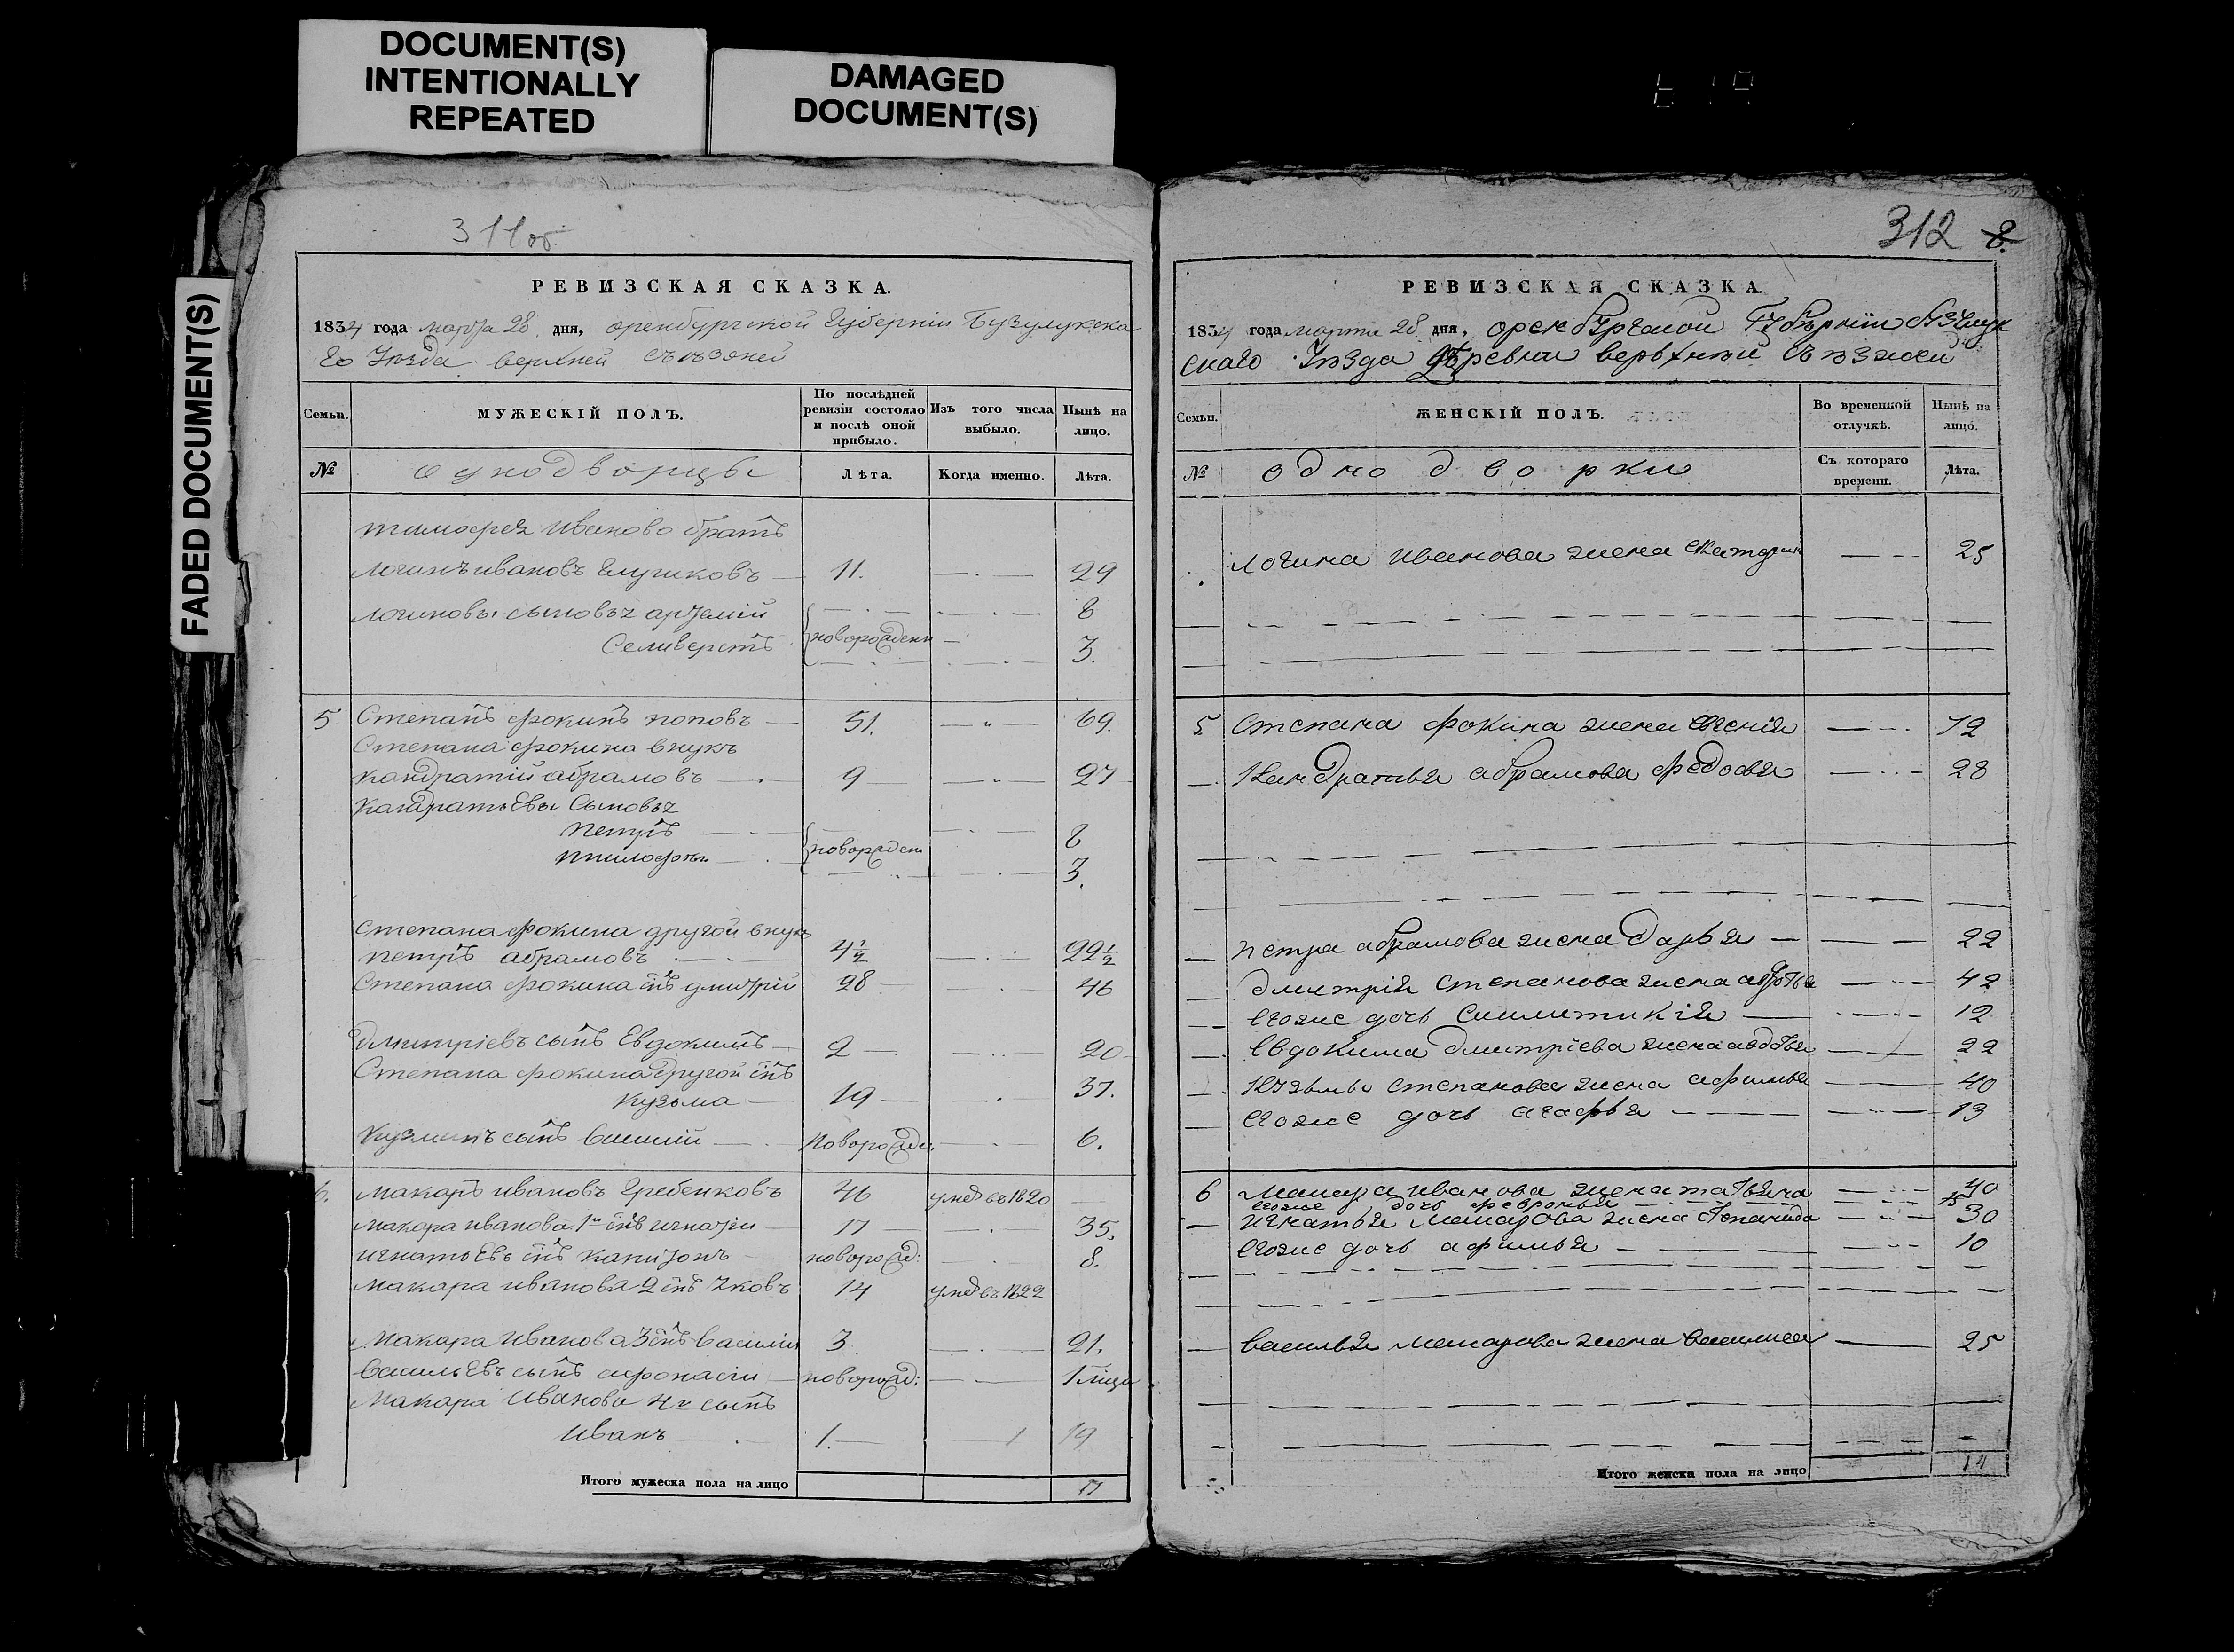 DOCUMENT(S)
INTENTIONALLY
REPEATED
DAMAGED
DOCUMENT(S)
FADED DOCUMENT(S)
311об.
РЕВИЗСКАЯ СКАЗКА.
1834 года марта 28 дня, оренбургской Губерніи Бузулукска
го Уезда верхней Съезжей
Семьи. МУЖЕСКІЙ ПОЛЪ. По послѣдней ревизіи состояло и послѣ оной прибыло. Изъ того числа выбыло. Нынѣ на лицо.
№ однодворцы Лѣта. Когда именно. Лѣта.
тимофея Иванова братъ
логинъ ивановъ 11. 29
логиновы сыновья артемій 8
Селиверстъ новорожден 3.
5 Степанъ фокинъ поповъ 51. 69.
Степана фокина внукъ
кандратій абрамовъ 9 27
кандратьевы Сыновья
петръ новорожден 8
3.
Степана фокина другой внукъ
петръ абрамовъ 4 1/2 22 1/2
Степана фокина снъ дмитрій 28 46
дмитріевъ сынъ Евдокимъ 2 20
Степана фокина другой снъ
кузьма 19 37.
кузминъ сынъ 6.
6. макаръ ивановъ Гребенковъ 46 умеръ въ 1820
макара иванова 1й снъ игнатіи 17 35.
игнатьевъ снъ капитонъ новорожд: 8.
макара иванова 2 снъ яковъ 14 умеръ въ 1822
макара иванова 3 снъ Василіи 3 21.
Васильевъ сынъ афонасіи новорожд:
макара Иванова 4й сынъ
Иванъ 1. 19
Итого мужеска пола на лицо 17
312 8.
РЕВИЗСКАЯ СКАЗКА
1834 года марта 28 дня, оренбургской Губерніи Бузулук
скаго Уезда деревни верхней Съезжей
Семьи. ЖЕНСКІЙ ПОЛЪ. Во временной отлучкѣ. Нынѣ на лицо.
№ однодворки Съ котораго времени. Лѣта.
логина иванова жена Катерина 25
5 Степана фокина жена 72
Кандратья абрамова федосья 28
петра абрамова жена дарья 22
дмитрія степанова жена 42
Егоже дочь 12
Евдокима дмитріева жена авдотья 22
Кузьмы степанова жена афимья 40
Егоже дочь агафья 13
6 макара иванова жена татьяна 40
Егоже дочь февронья 15
игнатья макарова жена Степанида 30
Егоже дочь афимья 10
василья макарова жена василиса 25
Итого женска пола на лицо 14